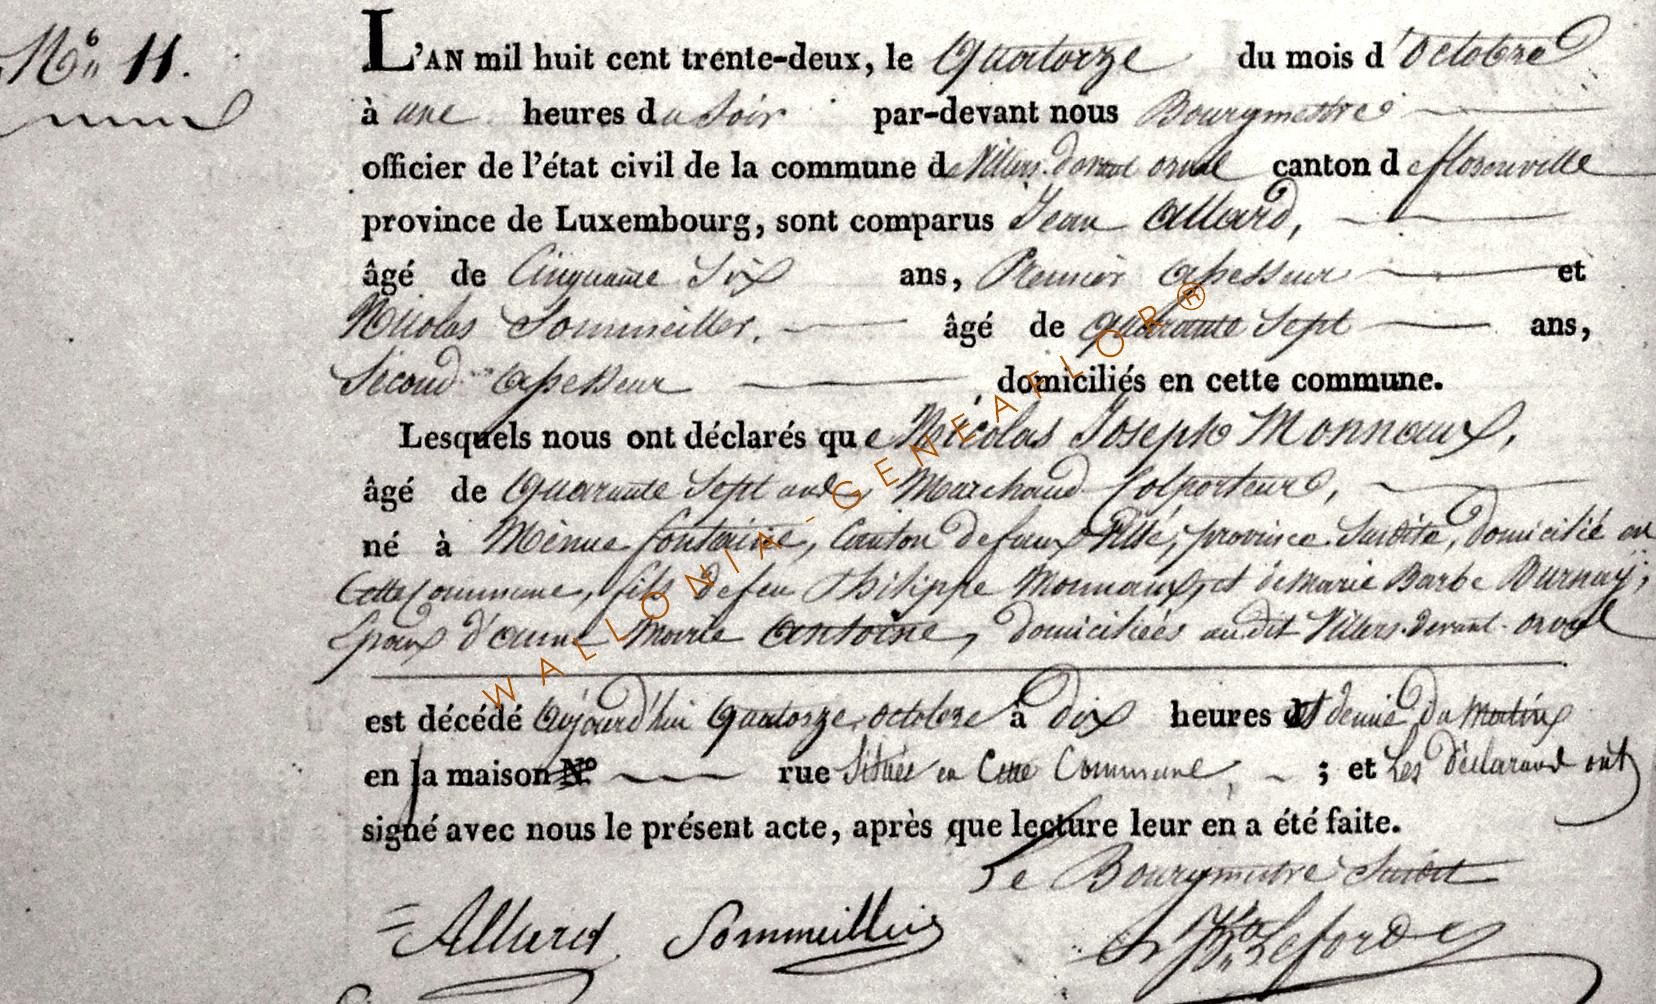 N.° 11. L'AN mil huit cent trente-deux, le Quatorze du mois d'Octobre
à une heures du Soir par-devant nous Bourgmestre
officier de l'état civil de la commune de Villers-devant orval canton de florenville
province de Luxembourg, sont comparus Jean Allard,
âgé de Cinquante Six ans, Premier assesseur et
Nicolas Sommeiller, âgé de quarante Sept ans,
Second assesseur domiciliés en cette commune.
Lesquels nous ont déclarés que Nicolas Joseph Monnaux,
âgé de Quarante Sept ans, Marchand Colporteur,
né à Mênue fontaine, Canton de province Susdite, domicilié en
Cette Commune, fils de feu Philippe Monnaux, et de Marie Barbe Burnay,
Epoux d'anne Marie Antoine, domiciliées audit Villers-Devant-orval
est décédé aujourd'hui quatorze octobre à dix heures et demie du Matin
en la maison N.° rue Située en Cette Commune ; et Les déclarans ont
signé avec nous le présent acte, après que lecture leur en a été faite.
Le Bourgmestre Susdit
Allard Sommeillier
WALLONIA-GENEAFLOR®